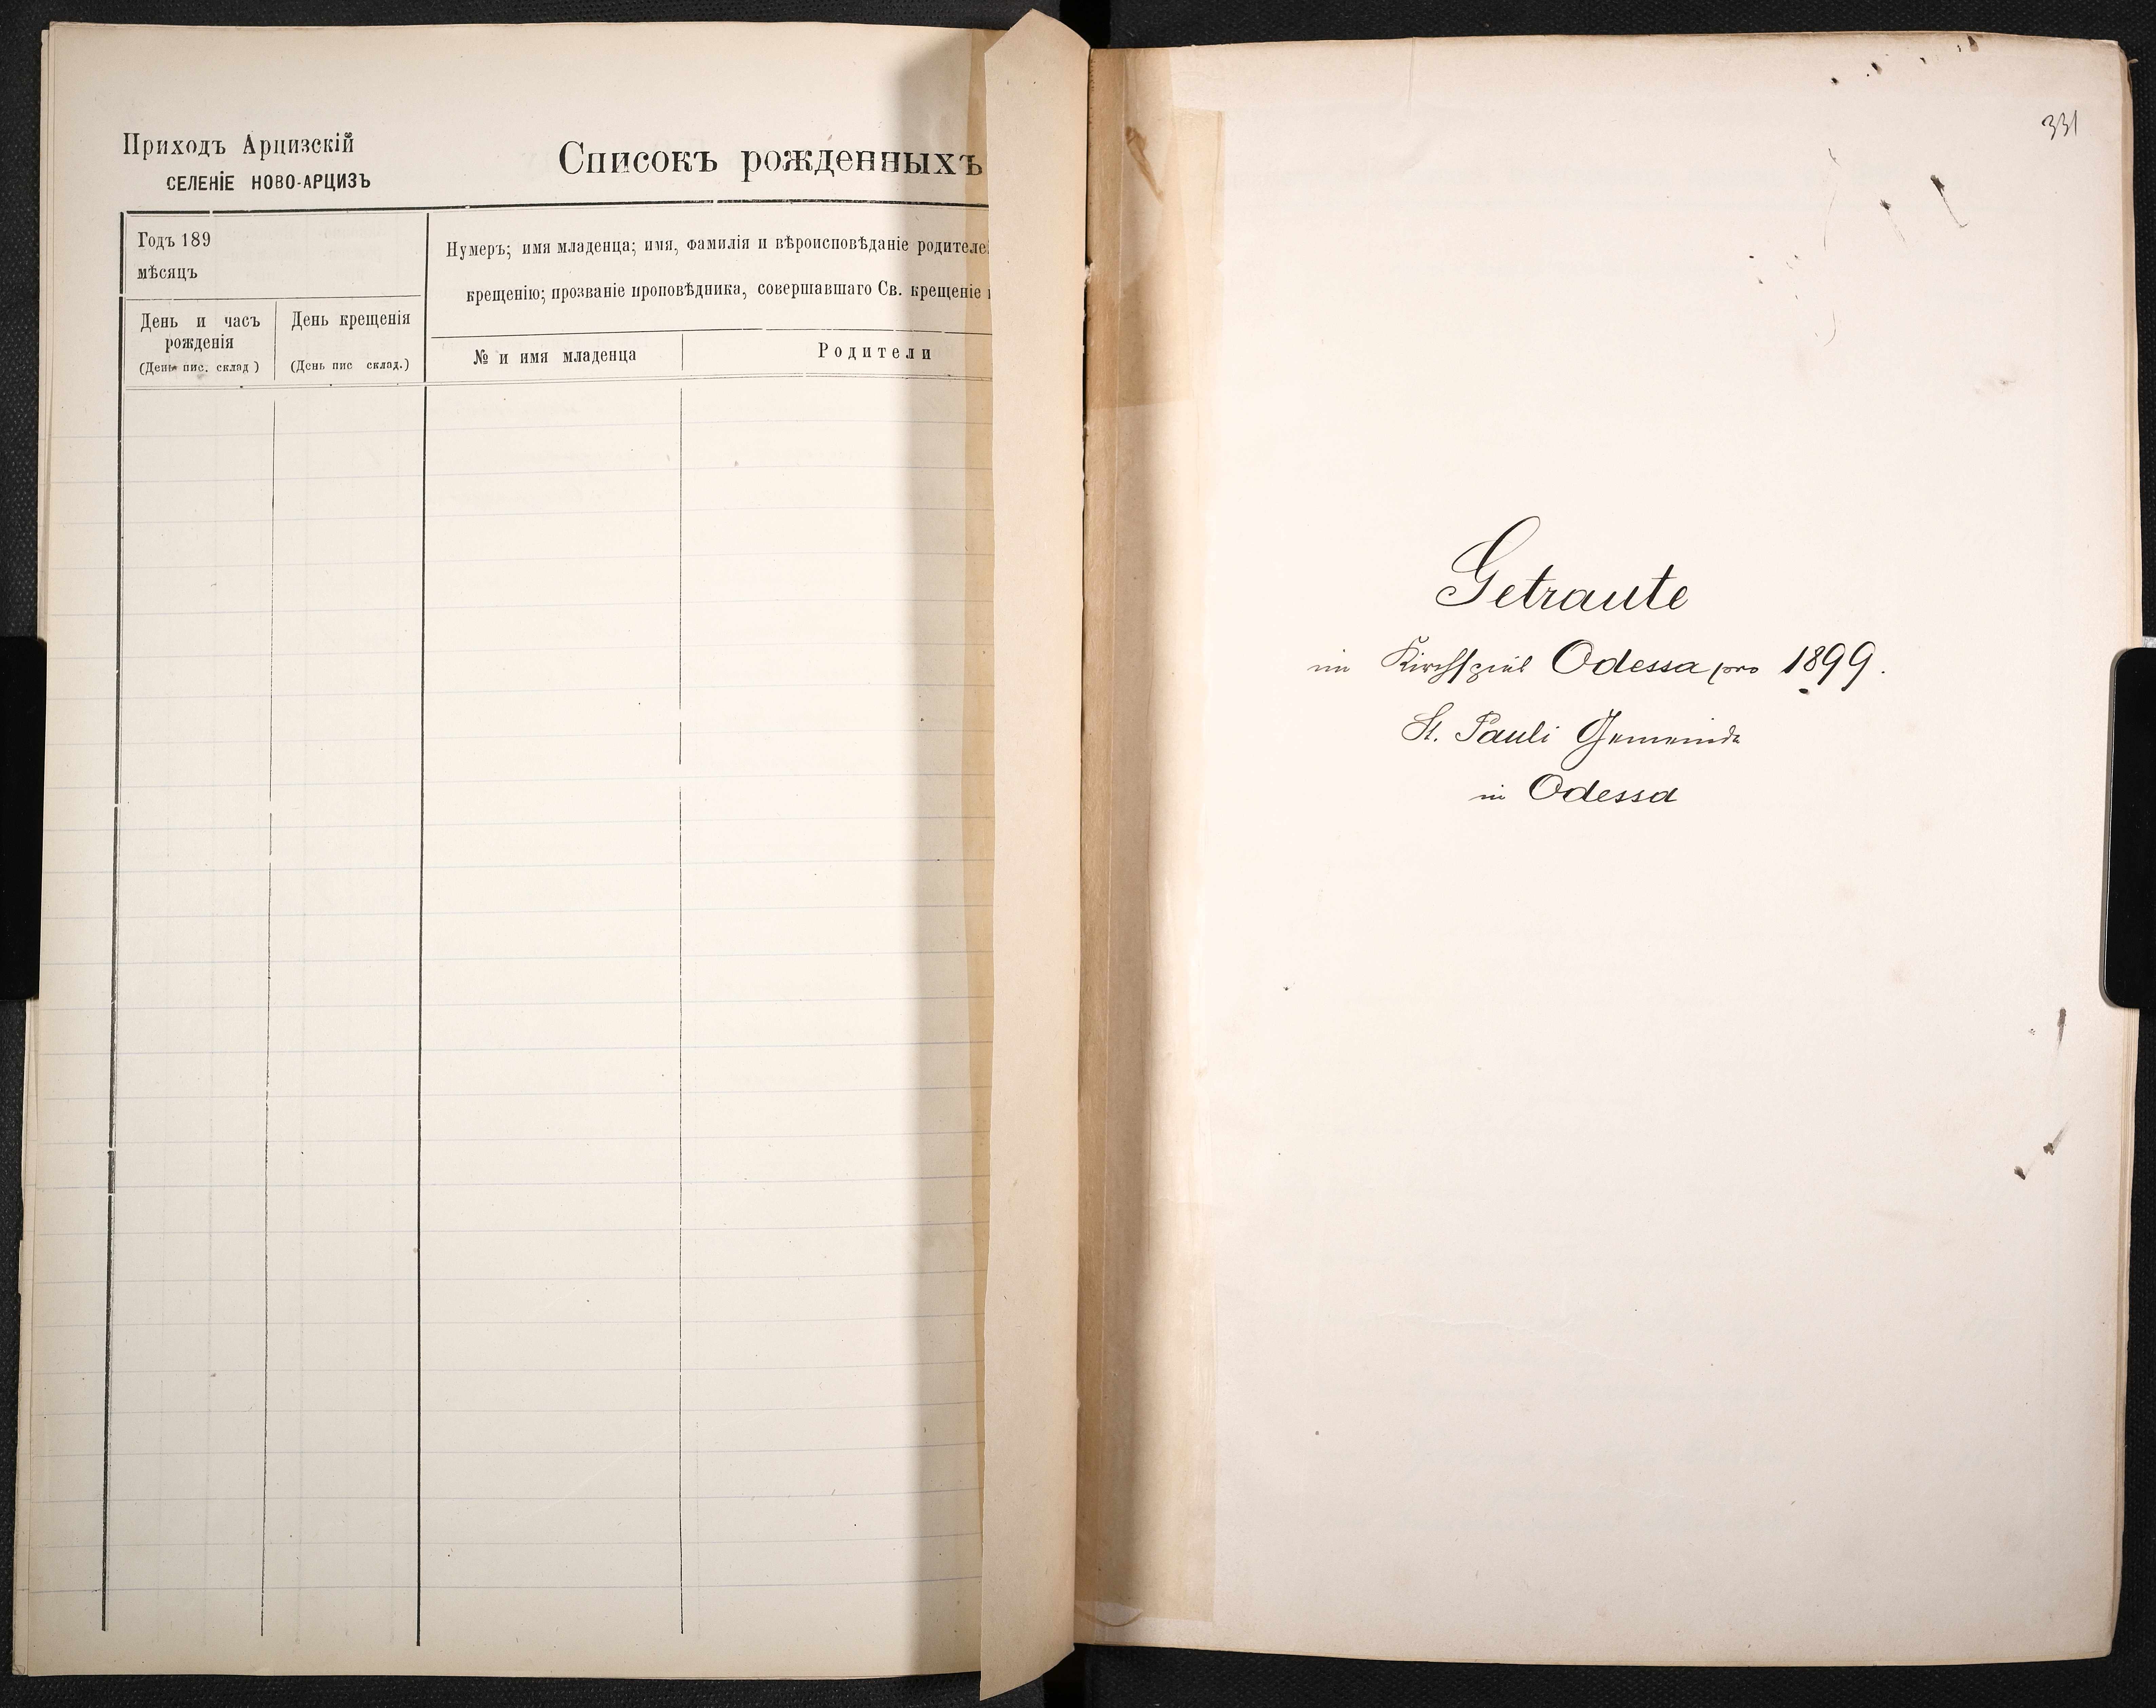 Приходъ Арцизскій
СЕЛЕНІЕ НОВО-АРЦИЗЪ
Списокъ рожденныхъ
Годъ 189
мѣсяцъ
Нумеръ; имя младенца; имя, фамилія и вѣроисповѣданіе родителе
крещенію; прозваніе проповѣдника, совершавшаго Св. крещеніе
День и часъ рожденія
(День пис. склад)
День крещенія
(День пис склад.)
№ и имя младенца
Родители
331
Getraute
im Kirchspiel Odessa pro 1899.
St. Pauli Gemeinde
in Odessa